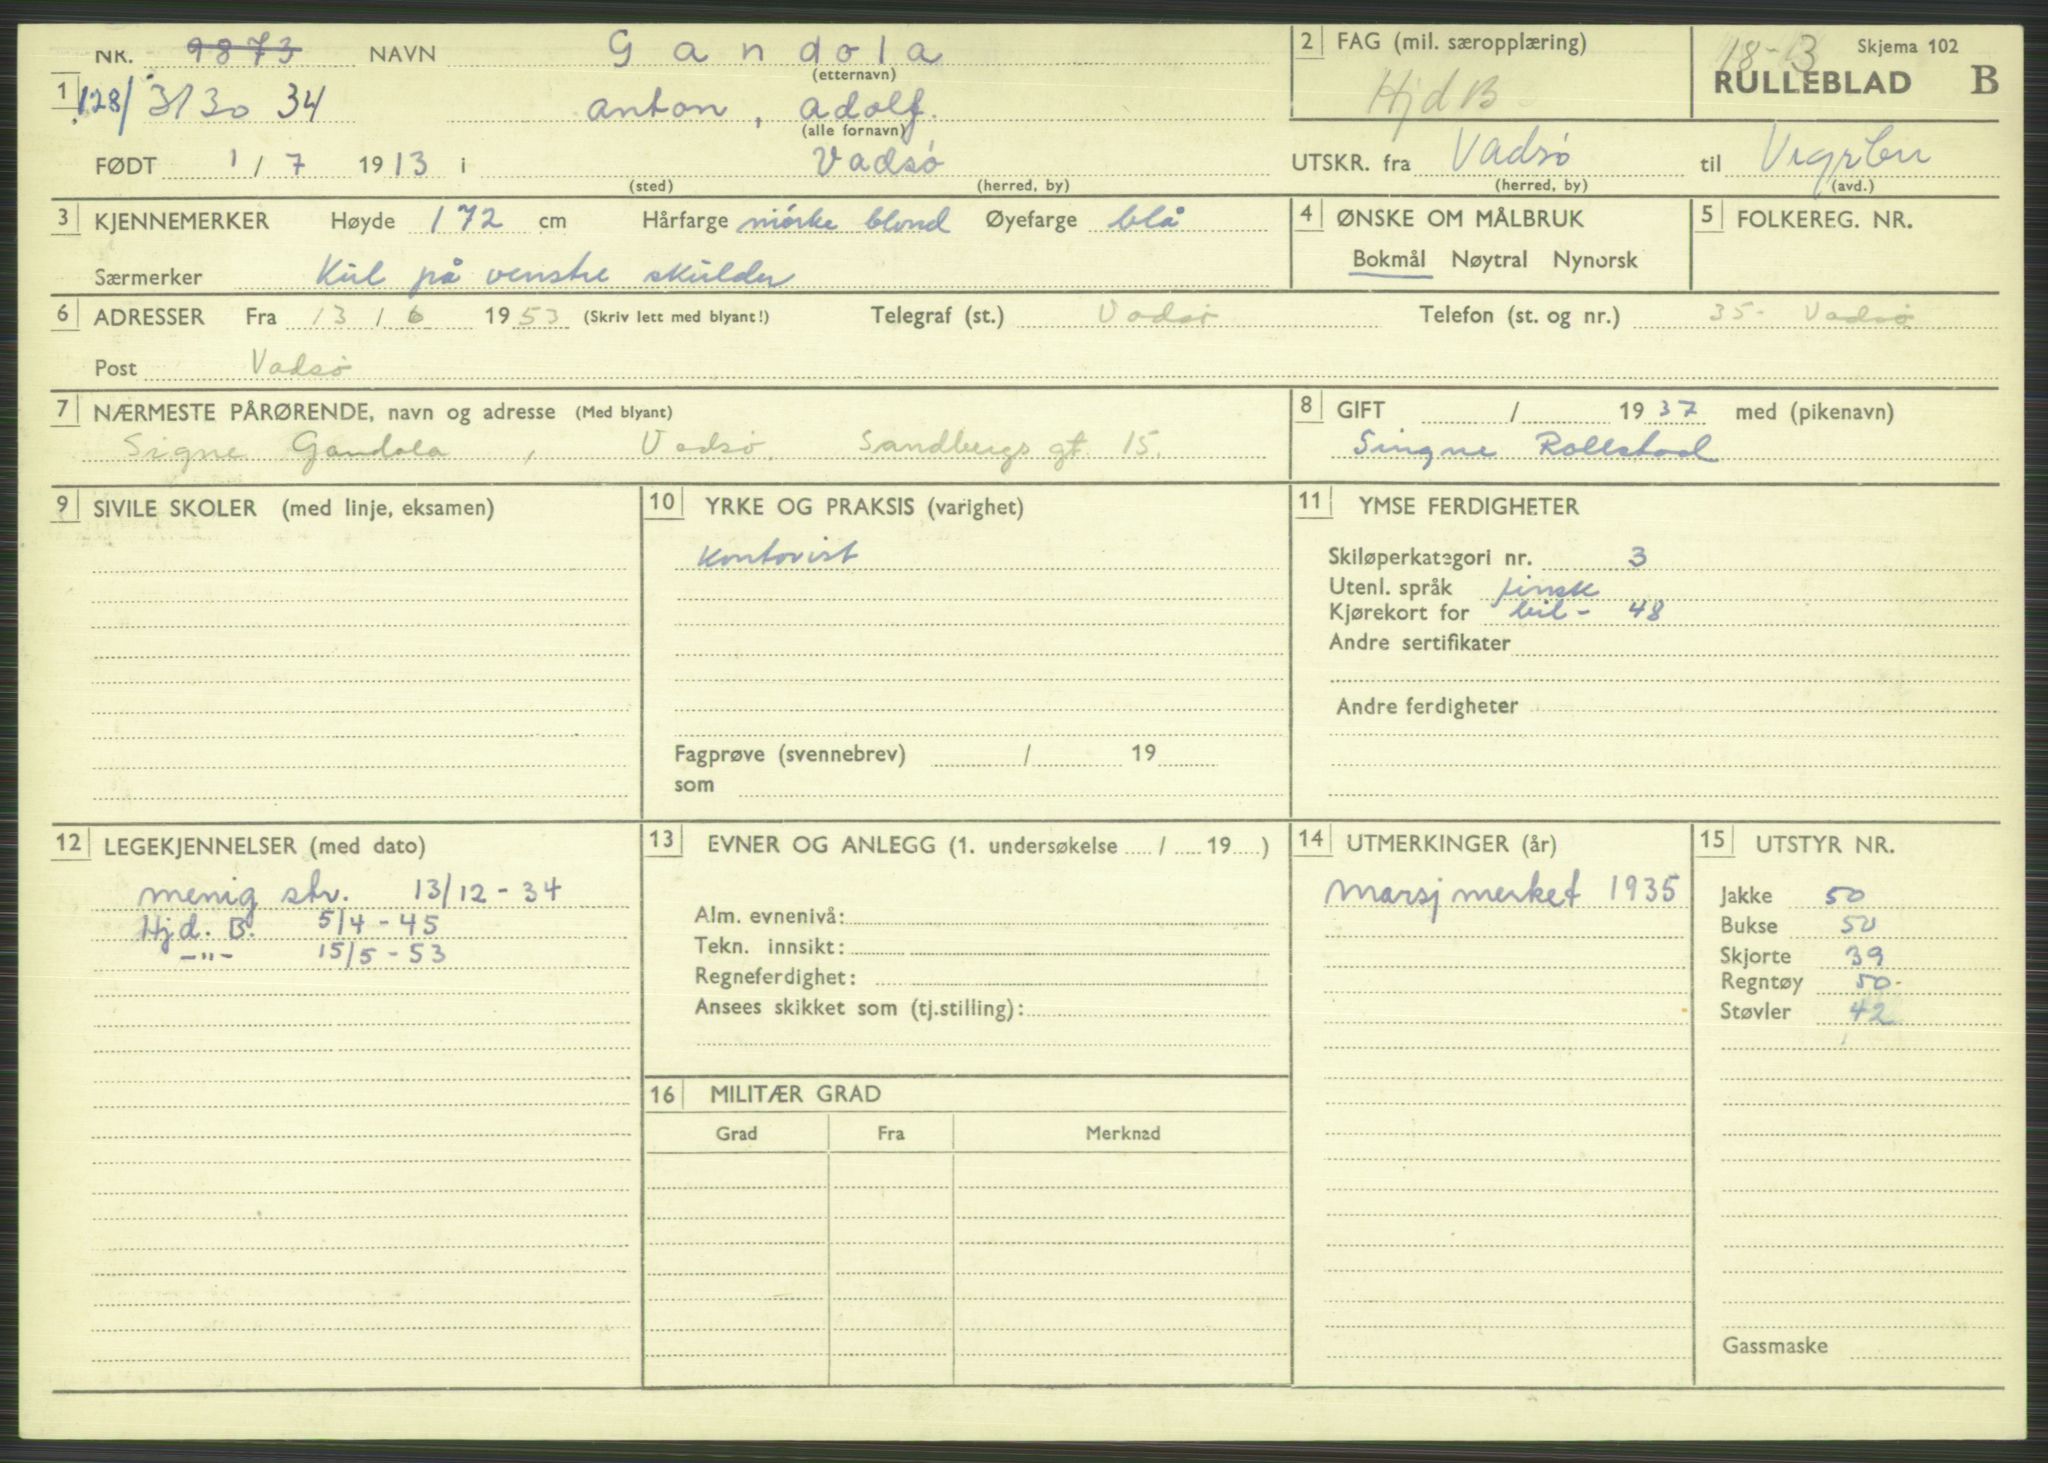 NR. 9873 NAVN Gandola
(etternavn)
1 128/3130 34 anton, adolf.
(alle fornavn)
FØDT 1/7 1913 i Vadsø
(sted) (herred, by)
2 FAG (mil. særopplæring)
Hjd B
18-B Skjema 102
RULLEBLAD B
UTSKR. fra Vadsø til
(herred, by) (avd.)
3 KJENNEMERKER Høyde 172 cm Hårfarge mörke blond Øyefarge blå
Særmerker Kul på venstre skulder
4 ØNSKE OM MÅLBRUK
Bokmål Nøytral Nynorsk
5 FOLKEREG. NR.
6 ADRESSER Fra 13/6 1953 (Skriv lett med blyant!) Telegraf (st.) Vadsø Telefon (st. og nr.) 35- Vadsø
Post Vadsø
7 NÆRMESTE PÅRØRENDE, navn og adresse (Med blyant)
Signe Gandola, Vadsø. Sandbergs gt. 15.
8 GIFT / 1937 med (pikenavn)
Singne Rollstad
9 SIVILE SKOLER (med linje, eksamen)
10 YRKE OG PRAKSIS (varighet)
Kontorist
Fagprøve (svennebrev) / 19
som
11 YMSE FERDIGHETER
Skiløperkategori nr. 3
Utenl. språk finsk
Kjørekort for bil - 48
Andre sertifikater
Andre ferdigheter
12 LEGEKJENNELSER (med dato)
menig str. 13/12-34
Hjd. B. 5/4-45
-"- 15/5-53
13 EVNER OG ANLEGG (1. undersøkelse / 19 )
Alm. evnenivå:
Tekn. innsikt:
Regneferdighet:
Ansees skikket som (tj.stilling):
16 MILITÆR GRAD
Grad Fra Merknad
14 UTMERKINGER (år)
Marsjmerket 1935
15 UTSTYR NR.
Jakke 50
Bukse 50
Skjorte 39
Regntøy 50-
Støvler 42
Gassmaske